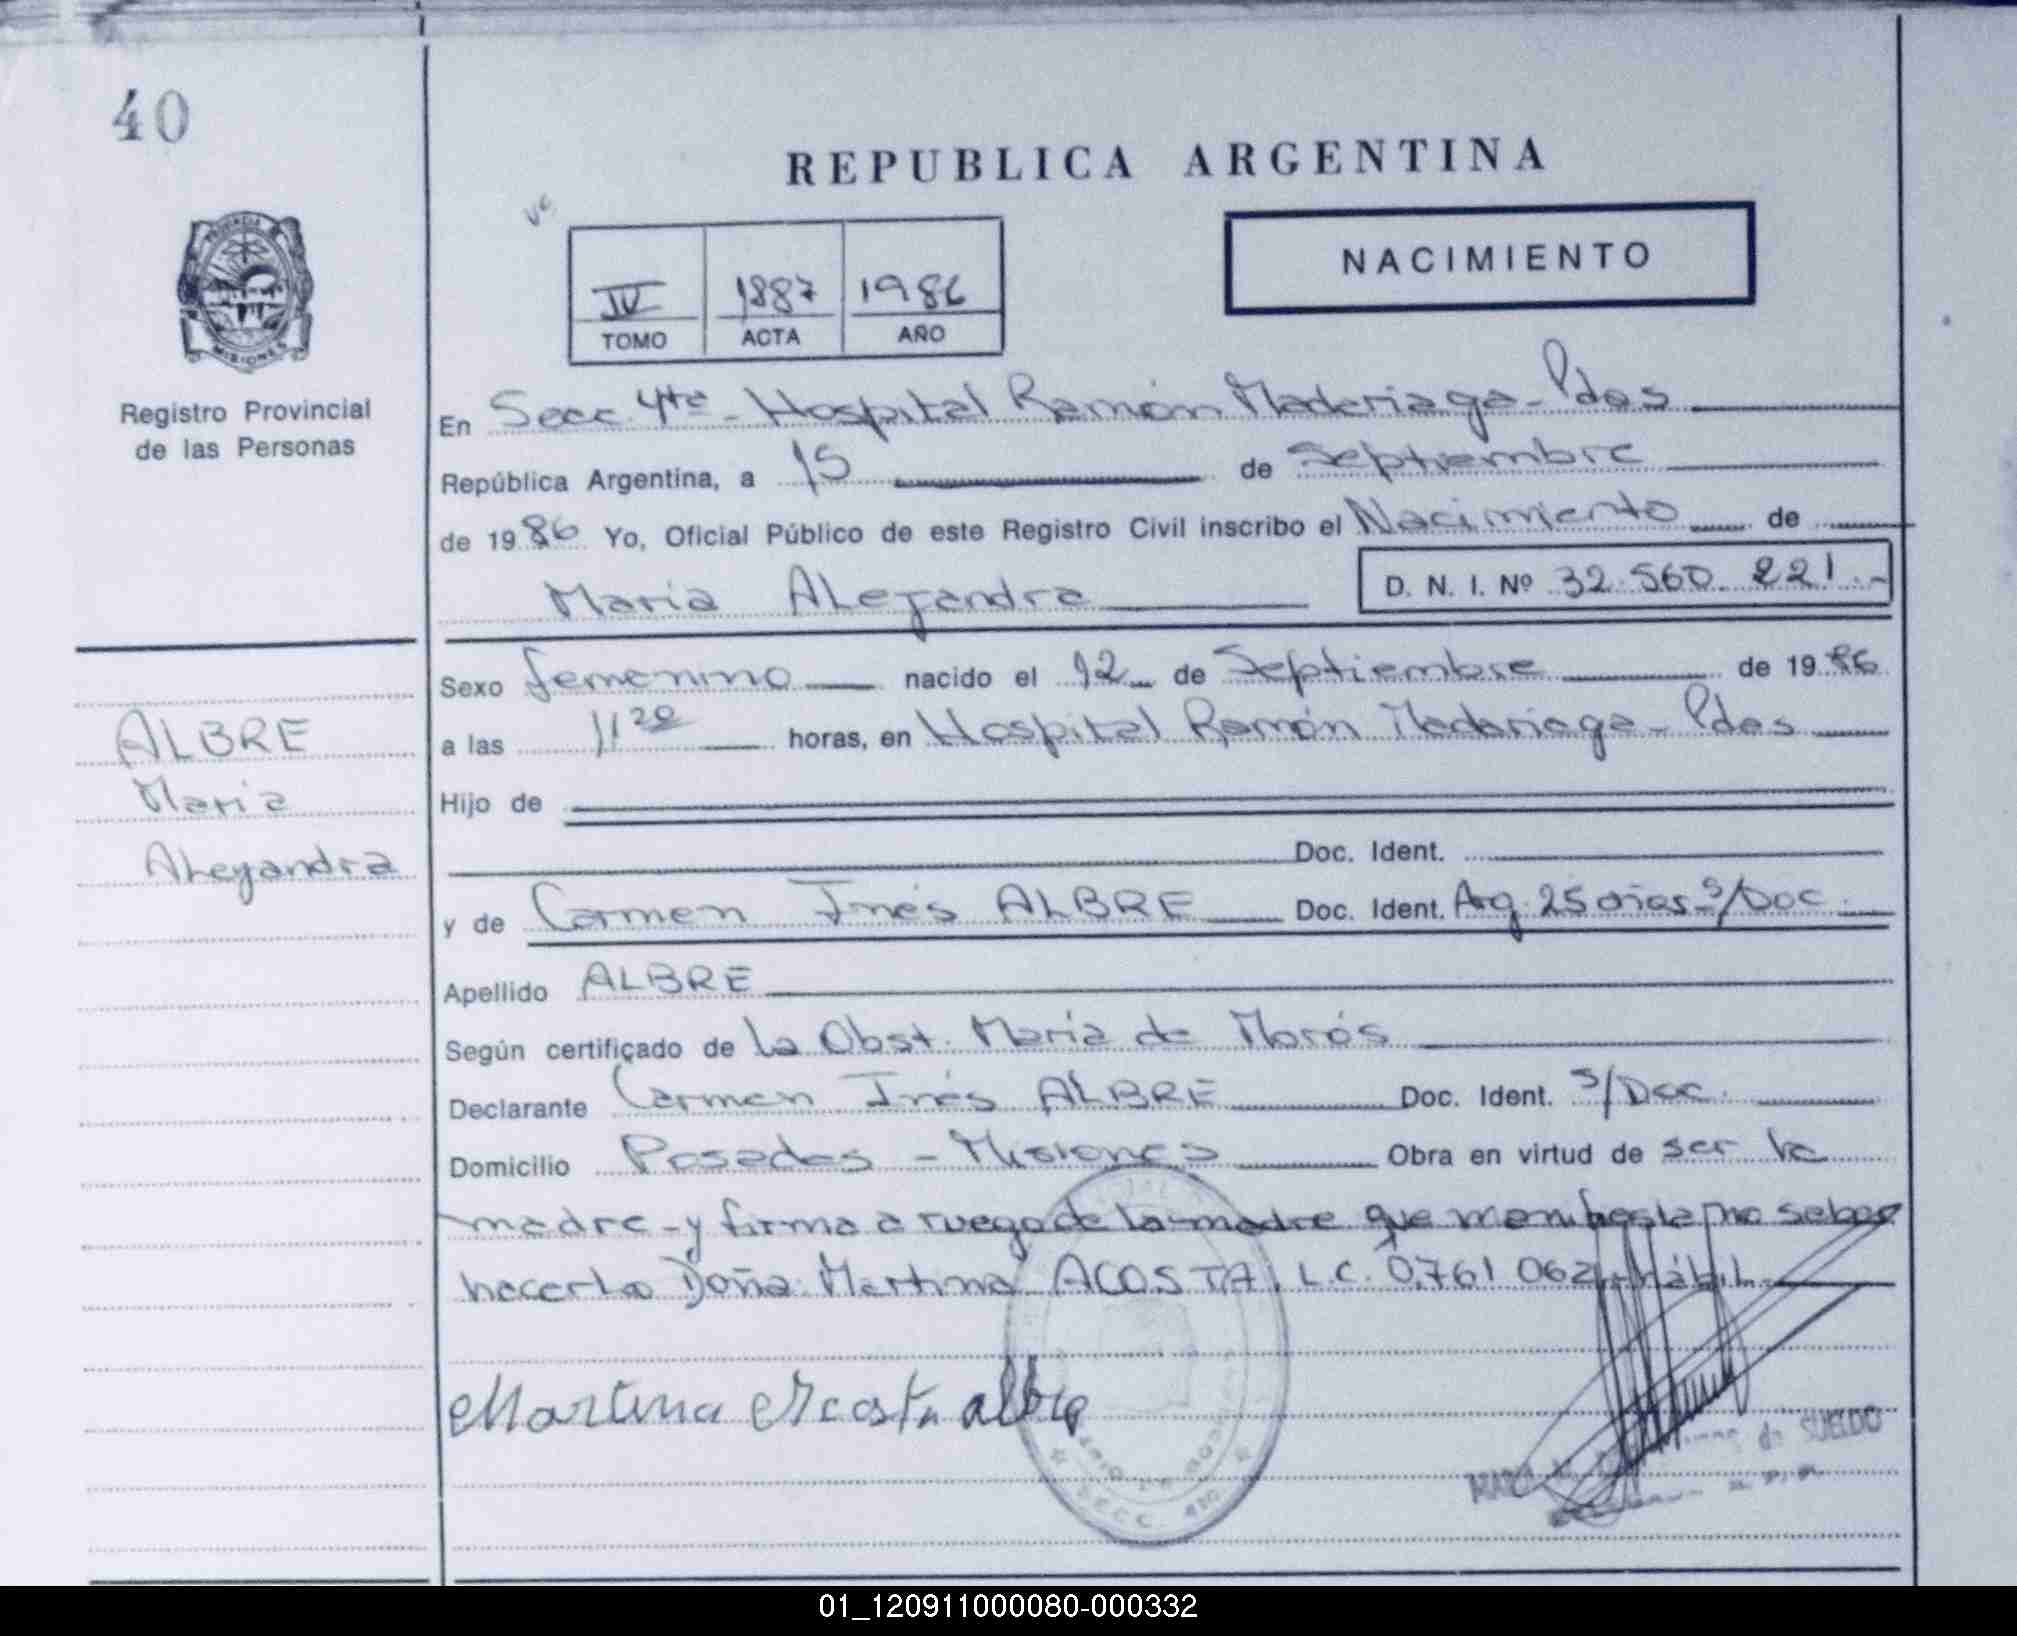 40
REPUBLICA ARGENTINA
NACIMIENTO
IV 1887 1986
TOMO ACTA AÑO
PROVINCIA
MISIONES
Registro Provincial
de las Personas
En Secc. 4ta - Hospital Ramón Madariaga - Pdas
República Argentina, a 15 de Septiembre
de 1986 Yo, Oficial Público de este Registro Civil inscribo el Nacimiento de
María Alejandra D. N. I. Nº 32.560.221.-
Sexo femenino nacido el 12 de Septiembre de 1986
a las 11 20 horas, en Hospital Ramón Madariaga - Pdas
ALBRE
María
Alejandra
Hijo de
Doc. Ident.
y de Carmen Inés ALBRE Doc. Ident. Arg. 25 años s/Doc.
Apellido ALBRE
Según certificado de la Obst. María de Morós
Declarante Carmen Inés ALBRE Doc. Ident. s/Doc.
Domicilio Posadas - Misiones Obra en virtud de ser la
madre - y firma a ruego de la madre que manifiesta no saber
hacerlo Doña Martina ACOSTA, L.C. 0.761.062 - Hábil
Martina Acosta albre
de SUELDO
SECC. 4ta
01_120911000080-000332